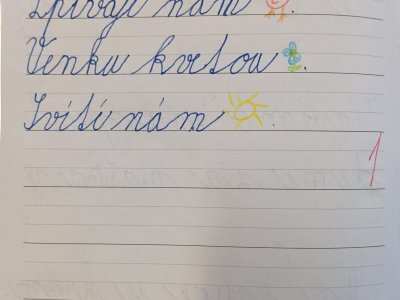 Zpívají nám .
Venku kvetou .
Svítí nám .
1